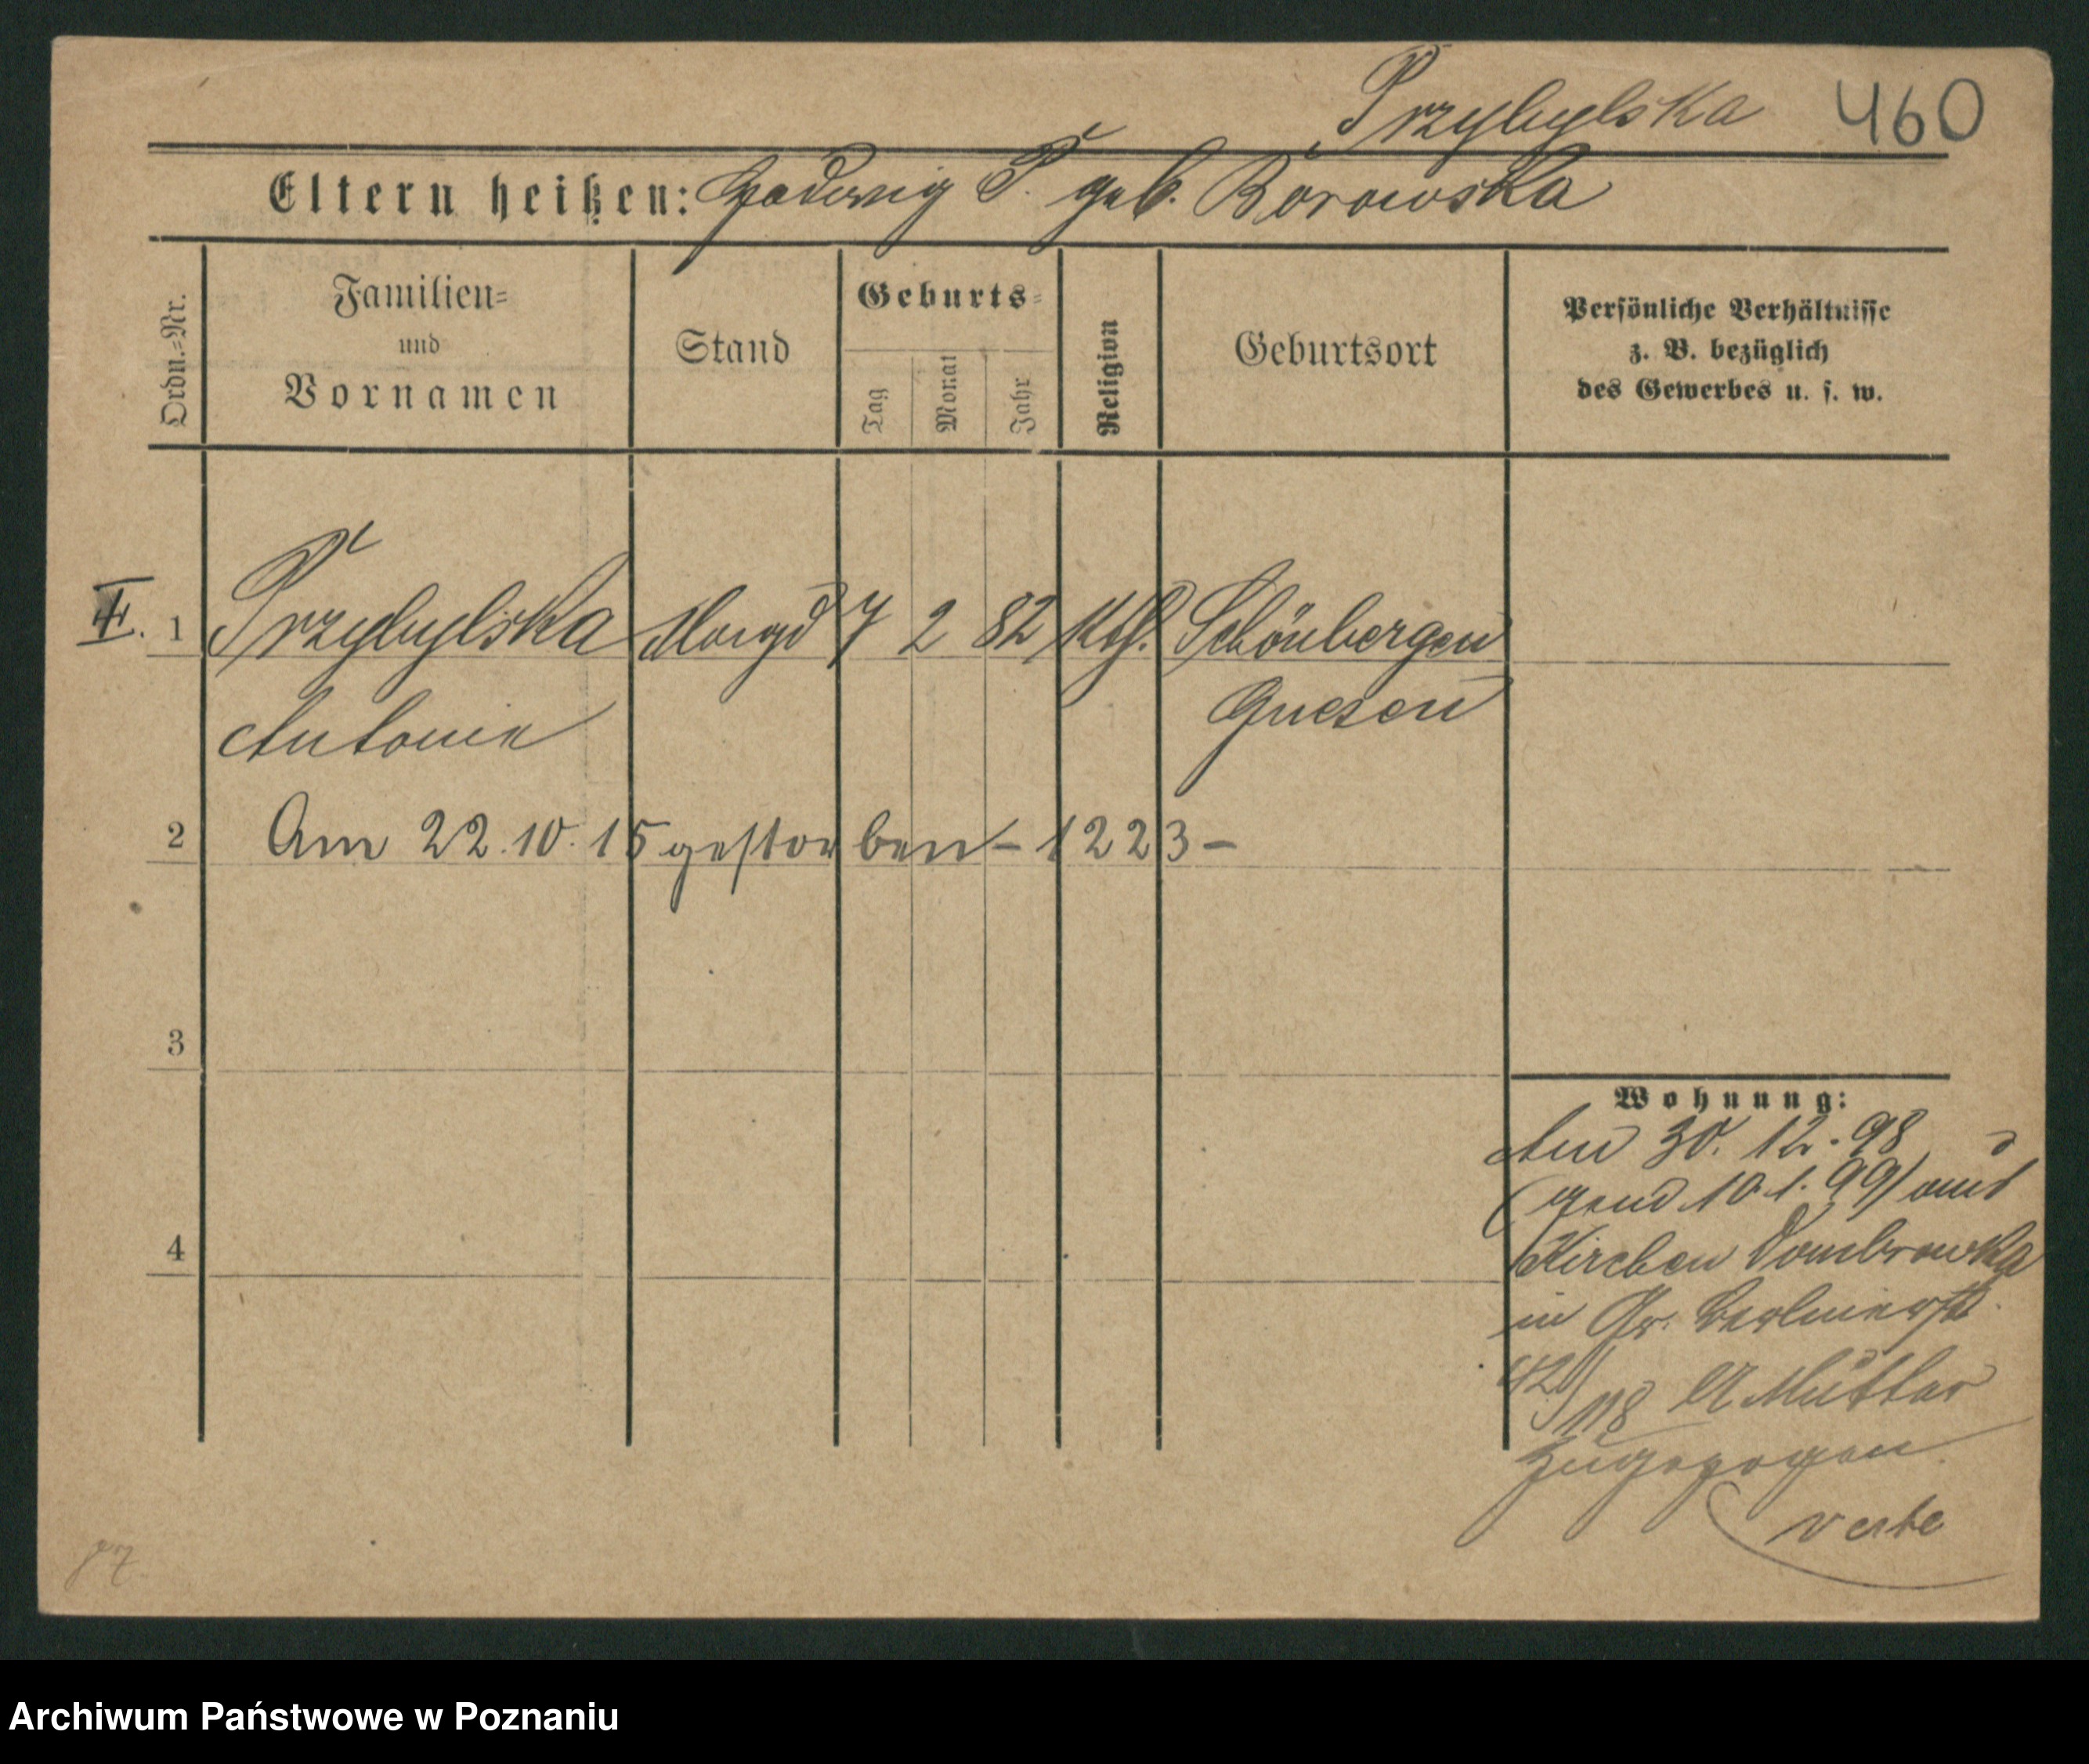 Przybylska 460
Eltern heißen: Hedwig P. geb. Borowska
Ordn.=Nr.
Familien=
und
Vornamen
Stand
Geburts=
Tag
Monat
Jahr
Religion
Geburtsort
Persönliche Verhältnisse
z. B. bezüglich
des Gewerbes u. s. w.
II. 1 Przybylska Magd 7 2 82 kth. Schönbergen
Antonie Gnesen
2 Am 22.10.15 gestorben - 1223 -
3
4
Wohnung:
Am 30. 12. 98
(gem 10.1.99) aus
Kirchen Dombrowka
in Gr. Berlinerst.
42/118 Mutter
zugezogen
verte
Archiwum Państwowe w Poznaniu